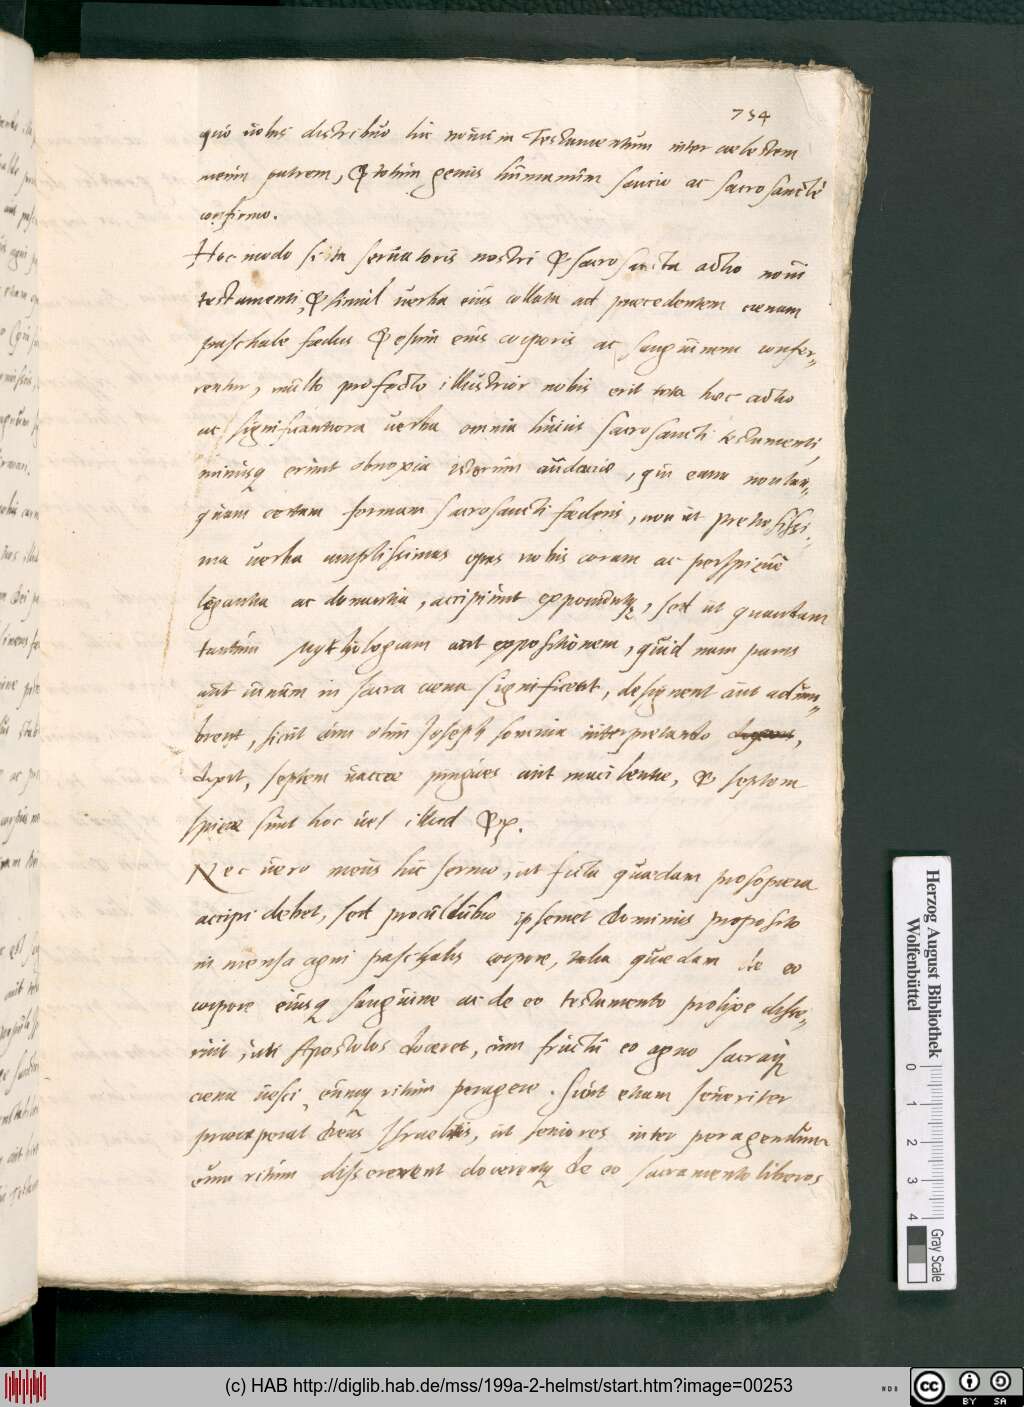 734
quo uobis distribuo hic nouum Testamentum inter cœlestem
meum patrem, & totum genus humanum sancio ac sacrosanctè
confirmo.
Hoc modo si ita seruatoris nostri & sacrosancta actio noui
testamenti, & simul uerba eius collata ad præcedentem cœnam
paschale fœdus & esum eius corporis ac sanguinem confer„
rentur, multo profecto illustrior nobis erit tota hæc actio
ac significantiora uerba omnia huius sacrosancti testamenti,
minusq erunt obnoxia istorum audaciæ, qui eam non tan„
quam certam formam sacrosancti fœderis, non ut pretiosissi„
ma uerba amplissimas opes nobis coram ac perspicuè
legantia ac donantia, accipiunt exponuntq, sed ut quandam
tantum Mythologiam aut expositionem, quid nam panis
aut uinum in sacra cœna significent, designent aut adum„
brent, sicut cum olim Joseph somnia interpretando
dixit, septem uaccæ pingues aut macilentæ, & septem
spicæ sunt hoc uel illud &c.
Nec uero meus hic sermo, ut ficta quædam prosopopœia
accipi debet, sed proculdubio ipsemet Dominus proposito
in mensa agni paschalis corpore, talia quædam de eo
corpore eiusq sanguine ac de eo testamento prolixe disse„
ruit, uti Apostolos doceret, cum fructu eo agno sacraq
cœna uesci, eumq ritum peragere. Sicut etiam seueriter
præceperat Deus Israelitis, ut seniores inter peragendum
eum ritum dissererent docerentq de eo sacramento liberos
Herzog August Bibliothek
Wolfenbüttel
0 1 2 3 4
Gray Scale
(c) HAB http://diglib.hab.de/mss/199a-2-helmst/start.htm?image=00253
cc BY SA